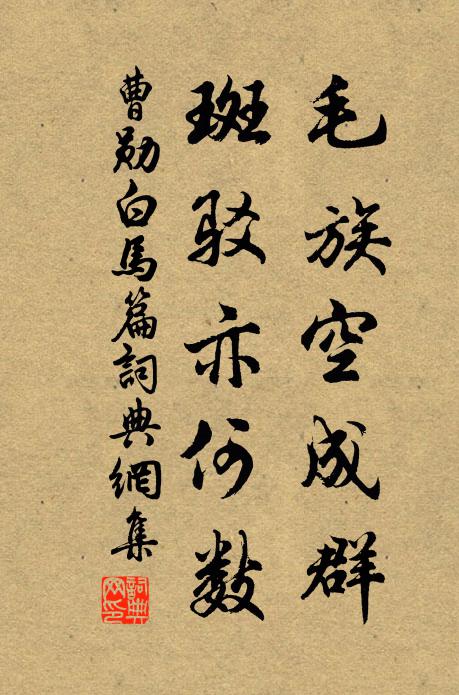 毛族空成群
斑驳亦何数
曹勛白馬篇詞典網集
詞典网印